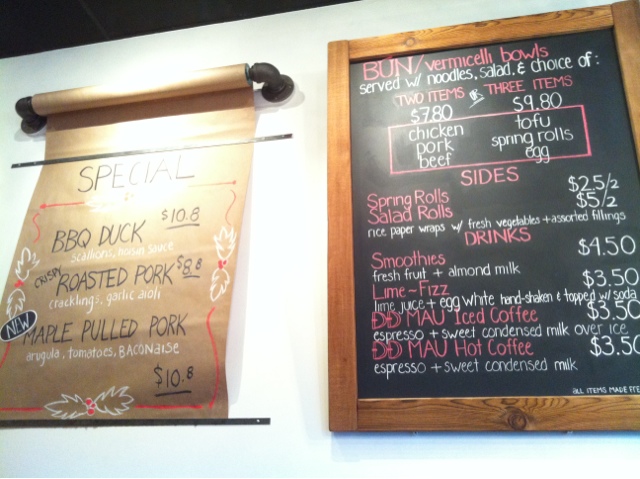 SPECIAL
$10.8
BBQ DUCK
scallions, hoisin sauce
CRISPY ROASTED PORK $8.8
cracklings, garlic aioli
NEW MAPLE PULLED PORK
arugula, tomatoes, BACONaise
$10.8
BUN/vermicelli bowls
served w/ noodles, salad, & choice of:
TWO ITEMS THREE ITEMS
$7.80 $9.80
chicken tofu
pork spring rolls
beef egg
SIDES
Spring Rolls $2.5/2
Salad Rolls $5/2
rice paper wraps w/ fresh vegetables + assorted fillings
DRINKS
Smoothies $4.50
fresh fruit + almond milk
Lime~Fizz $3.50
lime juice + egg white hand-shaken & topped w/ soda
ĐĐ MAU Iced Coffee $3.50
espresso + sweet condensed milk over ice
ĐĐ MAU Hot Coffee $3.50
espresso + sweet condensed milk
ALL ITEMS MADE